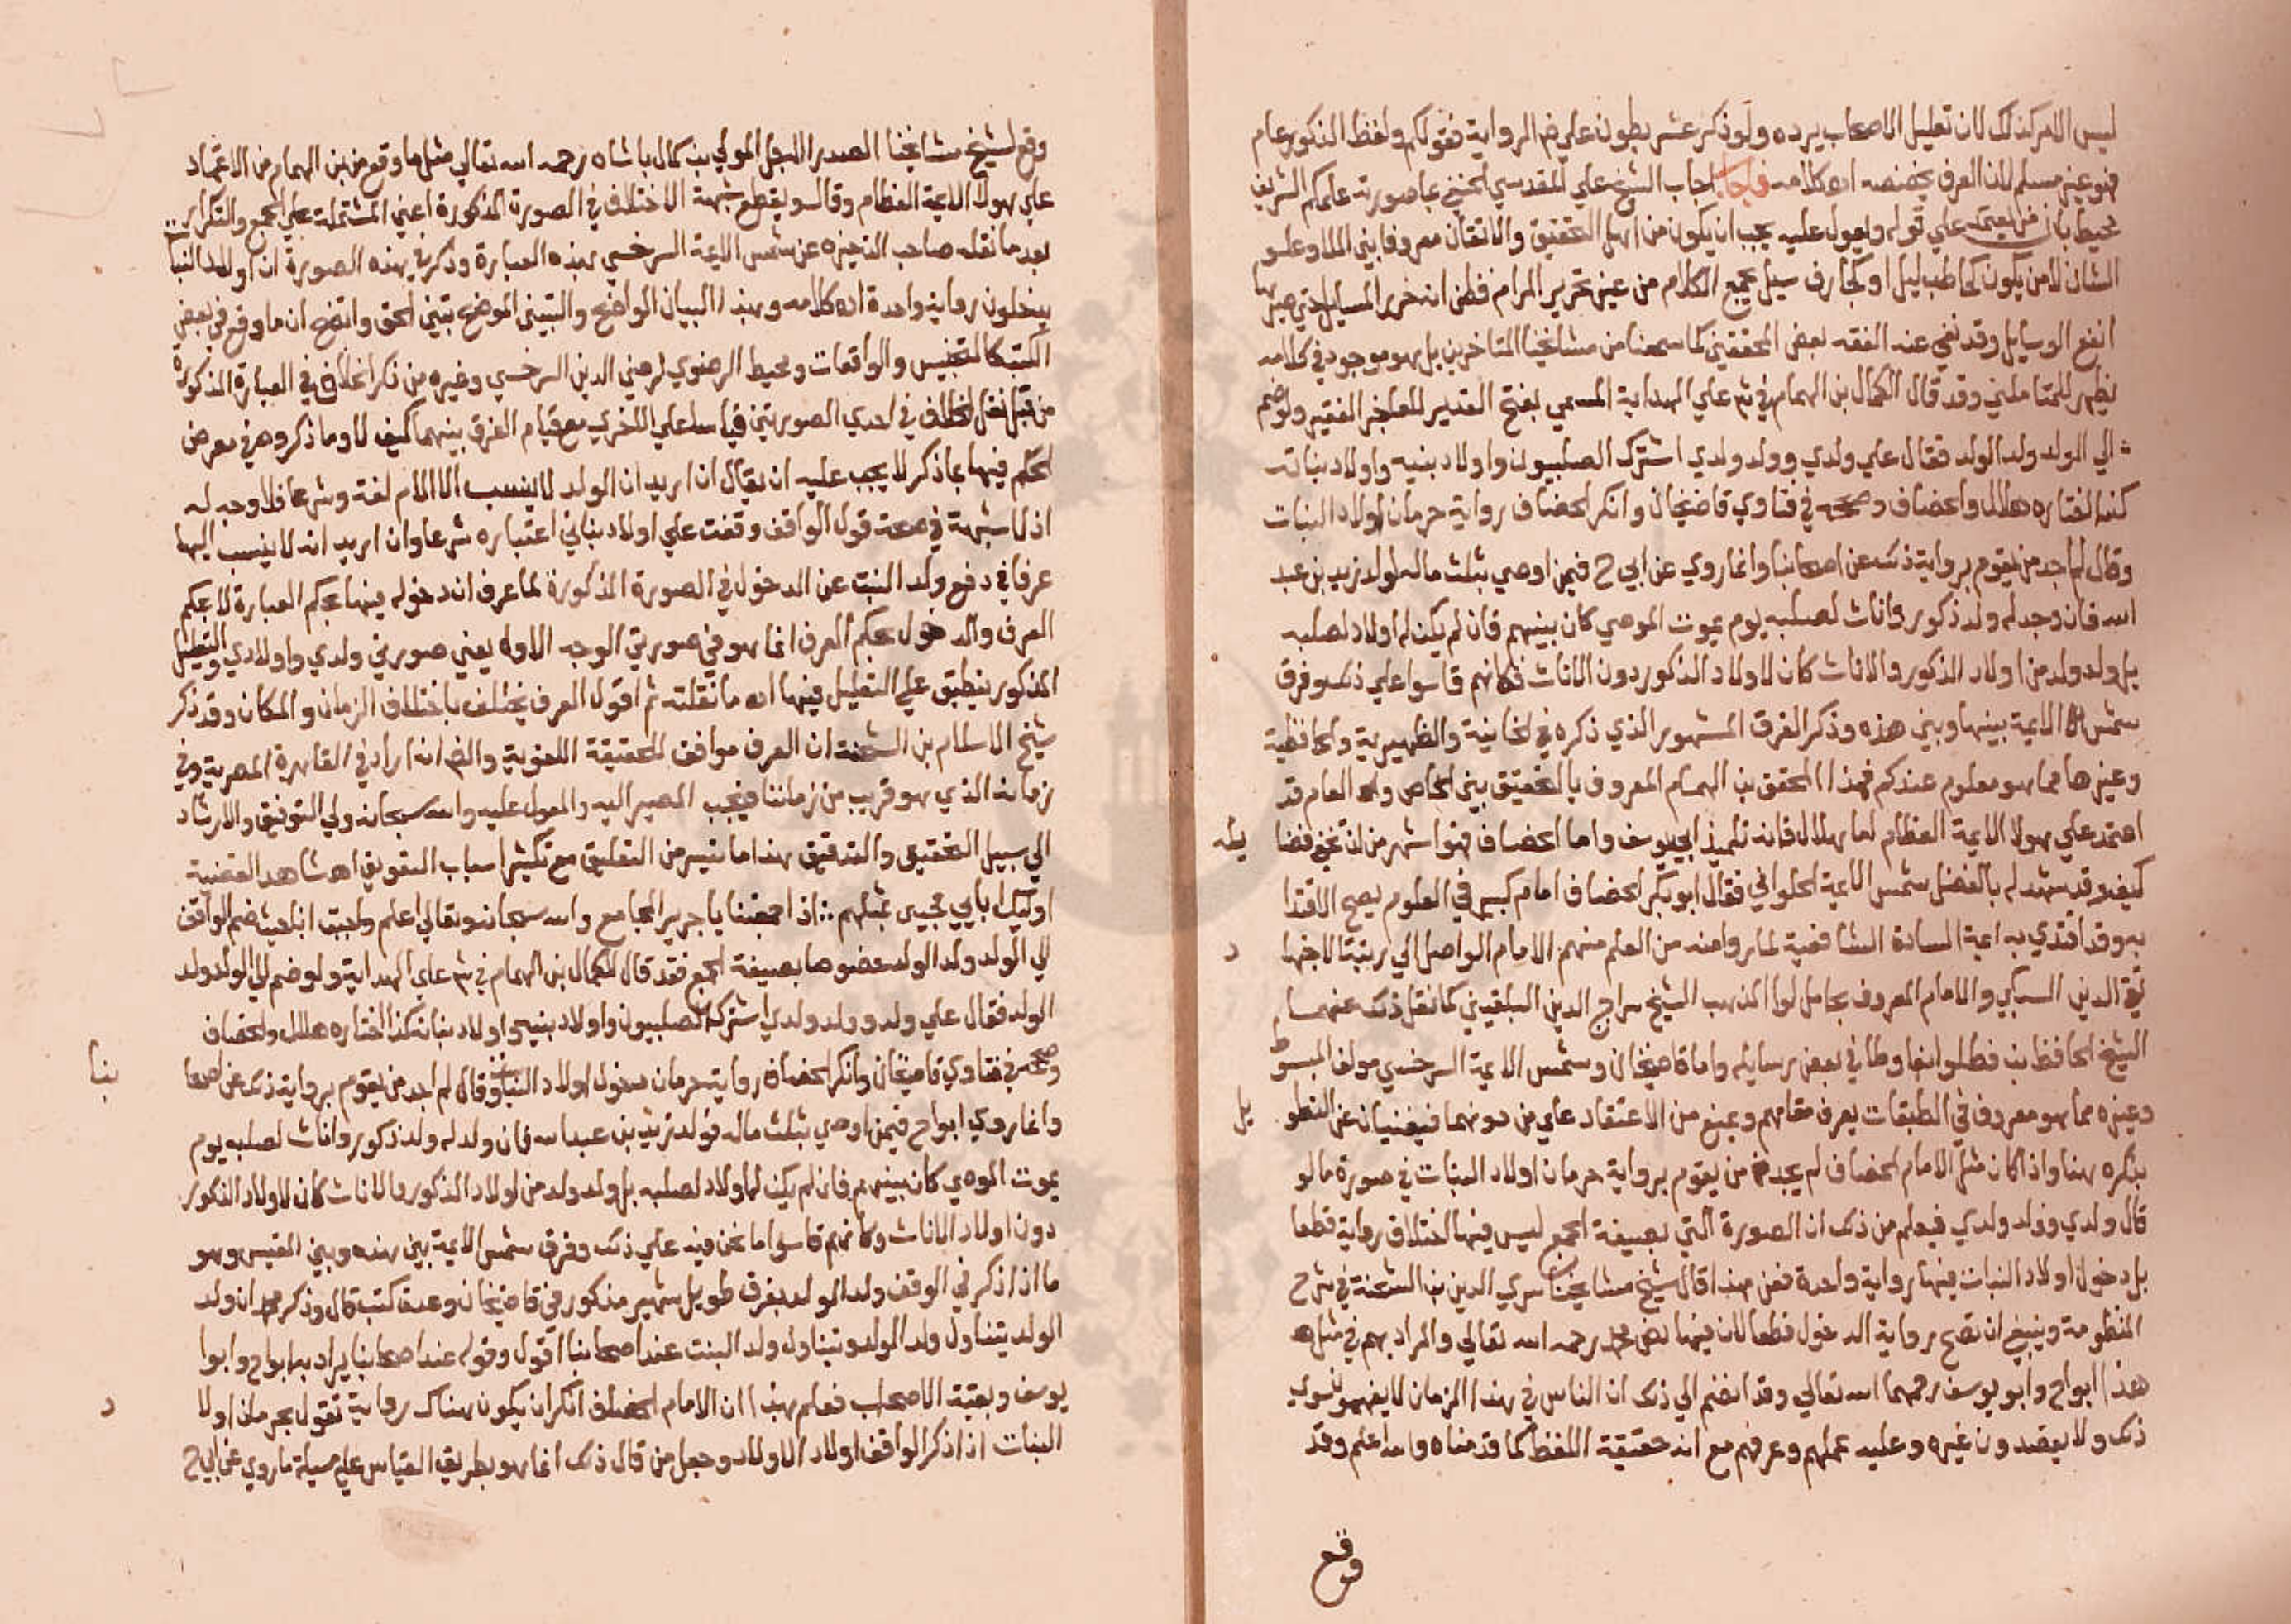 ليس الامر كذلك لان تعليل الاصحاب يرده ولو ذكر عشر بطون علي ضم الرواية فقولكم ولفظ الذكور عام
فهو غير مسلم لان العرف يخصصه اه كلامه فاجاب اجاب الشيخ علي المقدسي الحنفي بما صورته علمكم الشريف
محيط بان من يعتمد علي قوله ويعول عليه يجب ان يكون من اهل التحقيق والاتقان معروفا بين الملا وعلو
الشان لا من يكون كحاطب ليل او كجارف سيل يجمع الكلام من غير تحرير المرام فظن انه حرر المسايل حتي صيرها
انفع الوسايل وقد نفي عنه الفقه بعض المحققين كما سمعنا من مشايخنا المتاخرين بل هو موجود في كلامه
يظهر للمتاملين وقد قال الكمال بن الهمام في شرح علي الهداية المسمي بفتح القدير للعاجز الفقير ولو ضم
الي الولد ولد الولد فقال علي ولدي وولد ولدي اشترك الصلبيون واولاد بنيه واولاد بناته
كذا اختاره هلال والخصاف وصححه في فتاوي قاضيخان وانكر الخصاف رواية حرمان اولاد البنات
وقال لم اجد من يقوم برواية ذلك عن اصحابنا وانما روي عن ابي ح فيمن اوصي بثلث ماله لولد زيد بن عبد
الله فان وجد له ولد ذكور واناث لصلبه يوم يموت الموصي كان بينهم فان لم يكن له اولاد لصلبه
بل ولد ولد من اولاد الذكور والاناث كان لاولاد الذكور دون الاناث فكانهم قاسوا علي ذلك وفرق
شمس الايمة بينها وبين هذه وذكر الفرق المشهور الذي ذكره في الخانية والظهيرية والحافظية
وغيرها مما هو معلوم عندكم فهذا المحقق بن الهمام المعروف بالتحقيق بين الخاص والعام قد
اعتمد علي هولا الايمة العظام اما هلال فانه تلميذ ابي يوسف واما الخصاف فهو اشهر من ان تخفي فضا يله
كيف وقد شهد له بالفضل شمس الايمة الحلواني فقال ابو بكر الخصاف امام كبير في العلوم يصح الاقتدا
به وقد اقتدي به ايمة السادة الشافعية لما راوا منه من العلم منهم الامام الواصل الي رتبة الاجتها د
تقي الدين السبكي والامام المعروف بحامل لوا المذهب الشيخ سراج الدين البلقيني كما نقل ذلك عنهما
الشيخ الحافظ بن قطلوا بغا وطا في بعض رسايله واما قاضيخان وشمس الايمة السرخسي مولف المبسوط
وغيره مما هو معروف في الطبقات يعرف مقامهم ويمنع من الاعتقاد علي من دونهما فيغنيان عن التطو يل
بذكره هنا واذا كان مثل الامام الخصاف لم يجد من يقوم برواية حرمان اولاد البنات في صورة ما لو
قال ولدي وولد ولدي فيعلم من ذلك ان الصورة التي بصيغة الجمع ليس فيها اختلاف رواية قطعا
بل دخول اولاد البنات فيها رواية واحدة فعن هذا قال شيخ مشايخنا سري الدين بن الشحنة في شرح
المنظومة وينبغي ان تصح رواية الدخول قطعا لان فيها نص محمد رحمه الله تعالي والمراد بهم في مثل
هذا ابوح وابو يوسف رحمهما الله تعالي وقد انضم الي ذلك ان الناس في هذا الزمان لا يفهمون سوي
ذلك ولا يقصدون غيره وعليه عملهم وعرفهم مع انه حقيقة اللفظ كما قدمناه والله اعلم وقد
وقع
وقع لشيخ مشايخنا الصدر الاجل المولي بن كمال باشاه رحمه الله تعالي مثل ما وقع من بن الهمام من الاعتماد
علي هولا الايمة العظام وقال ويقطع شبهة الاختلاف في الصورة المذكورة اعني المشتملة علي الجمع والتكرار
بعد ما نقله صاحب الذخيره عن شمس الايمة السرخسي بهذه العبارة وذكر في هذه الصورة ان اولاد البنات
يدخلون رواية واحدة اه كلامه وبهذا البيان الواضح والتبيين الموضح تبين الحق واتضح ان ما وقع في بعض
الكتب كالتجنيس والواقعات ومحيط الرضوي لرضي الدين السرخسي وغيره من ذكر الخلاف في العبارة المذكورة
من قبل نقل الخلاف في احدي الصورتين قياسا علي الاخري مع قيام الفرق بينهما كيف لا وما ذكروه في معرض
الحكم فيها بما ذكر لا يجب عليه ان يقال ان اريد ان الولد لا ينسب الا الام لغة وشرعا فلا وجه له
اذ لا شبهة في صحة قول الواقف وقفت علي اولاد بناتي اعتباره شرعا وان اريد انه لا ينسب اليها
عرفا في دفع ولد البنت عن الدخول في الصورة المذكورة لما عرف ان دخوله فيها بحكم العبارة لا بحكم
العرف والدخول بحكم العرف انما هو في صورتي الوجه الاول يعني صورتي ولدي واولادي والتعليل
المذكور ينطبق علي التعليل فيها اه ما نقلته ثم اقول العرف يختلف باختلاف الزمان والمكان وقد ذكر
شيخ الاسلام بن الشحنة ان العرف موافق للحقيقة اللغوية والظ انه اراد في القاهرة المصرية وفي
زمانه الذي هو قريب من زماننا فيجب المصير اليه والمعول عليه والله سبحانه ولي التوفيق والارشاد
الي سبيل التحقيق والتدقيق هذا ما تيسر من التعليق مع تكثير اسباب التعويق اه شاهد القضية
اوليك ابايي فجيني بمثلهم ∴ اذا جمعتنا يا جرير المجامع والله سبحانه وتعالي اعلم واجبت ابنا حيث ضم الواقف
الي الولد ولد الولد خصوصا بصيغة الجمع فقد قال الكمال بن الهمام في شرح علي الهداية ولو ضم الي الولد ولد
الولد فقال علي ولد وولد ولدي اشترك الصلبيون واولاد بنيه واولاد بناته كذا اختاره هلال والخصاف
وصححه في فتاوي قاضيخان وانكر الخصاف رواية حرمان دخول اولاد البنات وقال لم اجد من يقوم برواية ذلك عن اصحا بنا
وانما روي ابو ح فيمن اوصي بثلث ماله لولد زيد بن عبد الله فان ولد له ولد ذكور واناث لصلبه يوم
يموت الموصي كان بينهم فان لم يكن له اولاد لصلبه بل ولد ولد من اولاد الذكور والاناث كان لاولاد الذكور
دون اولاد الاناث وكانهم قاسوا ما نحن فيه علي ذلك وفرق شمس الايمة بين هذه وبين المقيس وهو
ما اذا ذكر في الوقف ولد الولد بفرق طويل شهير مذكور في قاضيخان وعدة كتب قال وذكر محمد ان ولد
الولد يتناول ولد الولد ويتناول ولد البنت عند اصحابنا اقول وقوله عند اصحابنا يراد به ابو ح وابوا
يوسف وبقية الاصحاب فعلم بهذا ان الامام الخصاف انكر ان يكون هناك رواية تقول بحرمان اولا د
البنات اذا ذكر الواقف اولاد الاولاد وجعل من قال ذلك انما هو بطريق القياس علي مسيلة ما روي عن ابي ح